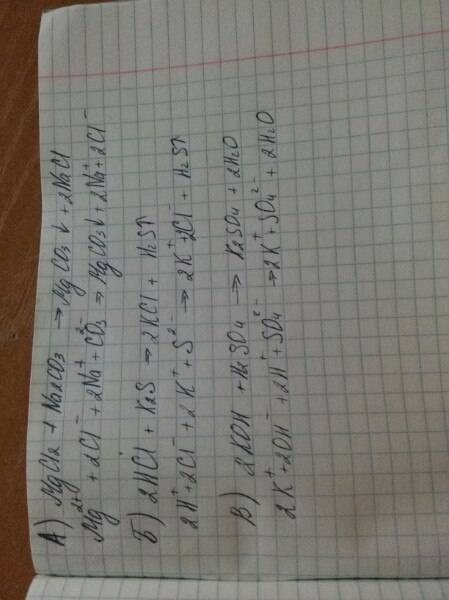 А) MgCl₂ + Na₂CO₃ → MgCO₃↓ + 2NaCl
Mg²⁺ + 2Cl⁻ + 2Na⁺ + CO₃²⁻ → MgCO₃↓ + 2Na⁺ + 2Cl⁻
Б) 2HCl + K₂S → 2KCl + H₂S↑
2H⁺ + 2Cl⁻ + 2K⁺ + S²⁻ → 2K⁺ + 2Cl⁻ + H₂S↑
В) 2KOH + H₂SO₄ → K₂SO₄ + 2H₂O
2K⁺ + 2OH⁻ + 2H⁺ + SO₄²⁻ → 2K⁺ + SO₄²⁻ + 2H₂O